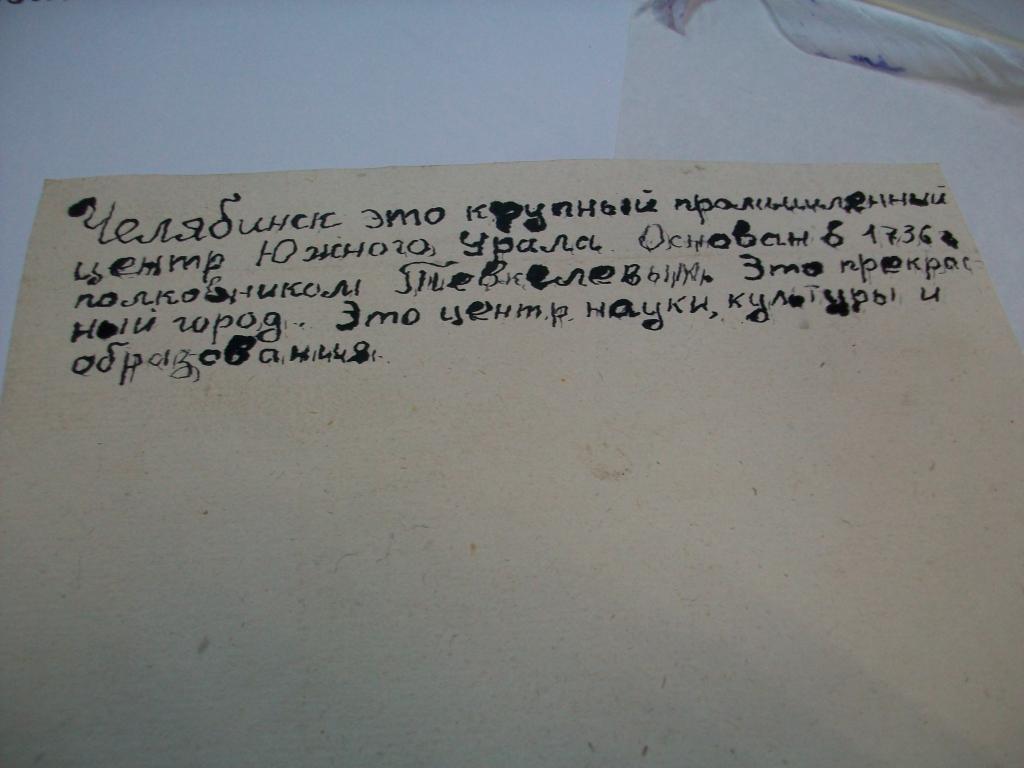 Челябинск это крупный промышленный
центр Южного Урала. Основан в 1736 г.
полковником Тевкелевым. Это прекрас-
ный город. Это центр науки, культуры и
образования.